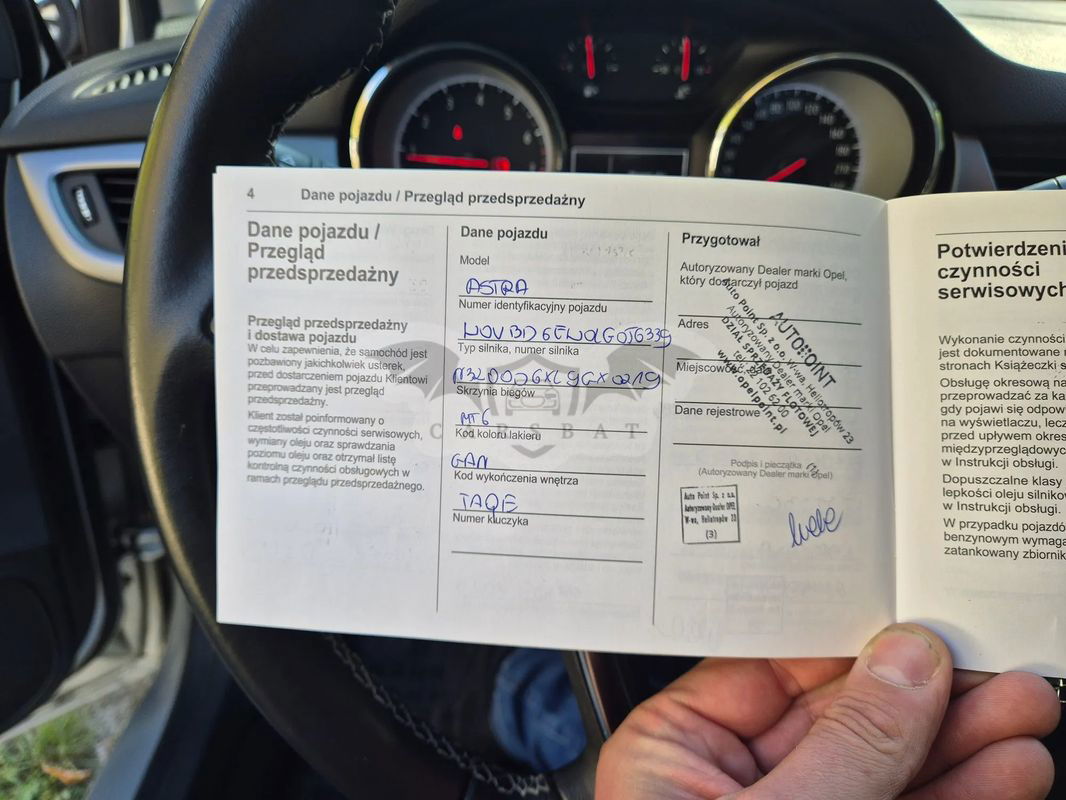 4 Dane pojazdu / Przegląd przedsprzedażny
Dane pojazdu /
Przegląd
przedsprzedażny
Przegląd przedsprzedażny
i dostawa pojazdu
W celu zapewnienia, że samochód jest
pozbawiony jakichkolwiek usterek,
przed dostarczeniem pojazdu Klientowi
przeprowadzany jest przegląd
przedsprzedażny.
Klient został poinformowany o
częstotliwości czynności serwisowych,
wymiany oleju oraz sprawdzania
poziomu oleju oraz otrzymał listę
kontrolną czynności obsługowych w
ramach przeglądu przedsprzedażnego.
Dane pojazdu
Model
ASTRA
Numer identyfikacyjny pojazdu
Typ silnika, numer silnika
Skrzynia biegów
MT6
Kod koloru lakieru
GAN
Kod wykończenia wnętrza
TAQE
Numer kluczyka
Przygotował
Autoryzowany Dealer marki Opel,
który dostarczył pojazd
Adres
Miejscowość,
Dane rejestrowe
AUTO POINT
Auto Point Sp. z o.o. W-wa, Heliotropów 23
Autoryzowany Dealer marki Opel
DZIAŁ SPRZEDAŻY FLOTOWEJ
www.opelpoint.pl
Podpis i pieczątka
(Autoryzowany Dealer marki Opel)
Auto Point Sp. z o.o.
Autoryzowany Dealer OPEL
W-wa, Heliotropów 23
(3)
Potwierdzeni
czynności
serwisowych
Wykonanie czynności
jest dokumentowane
stronach Książeczki s
Obsługę okresową na
przeprowadzać za ka
gdy pojawi się odpow
na wyświetlaczu, lecz
przed upływem okres
międzyprzeglądowyc
w Instrukcji obsługi.
Dopuszczalne klasy
lepkości oleju silnikow
w Instrukcji obsługi.
W przypadku pojazdó
benzynowym wymaga
zatankowany zbiornik
CARSBAT